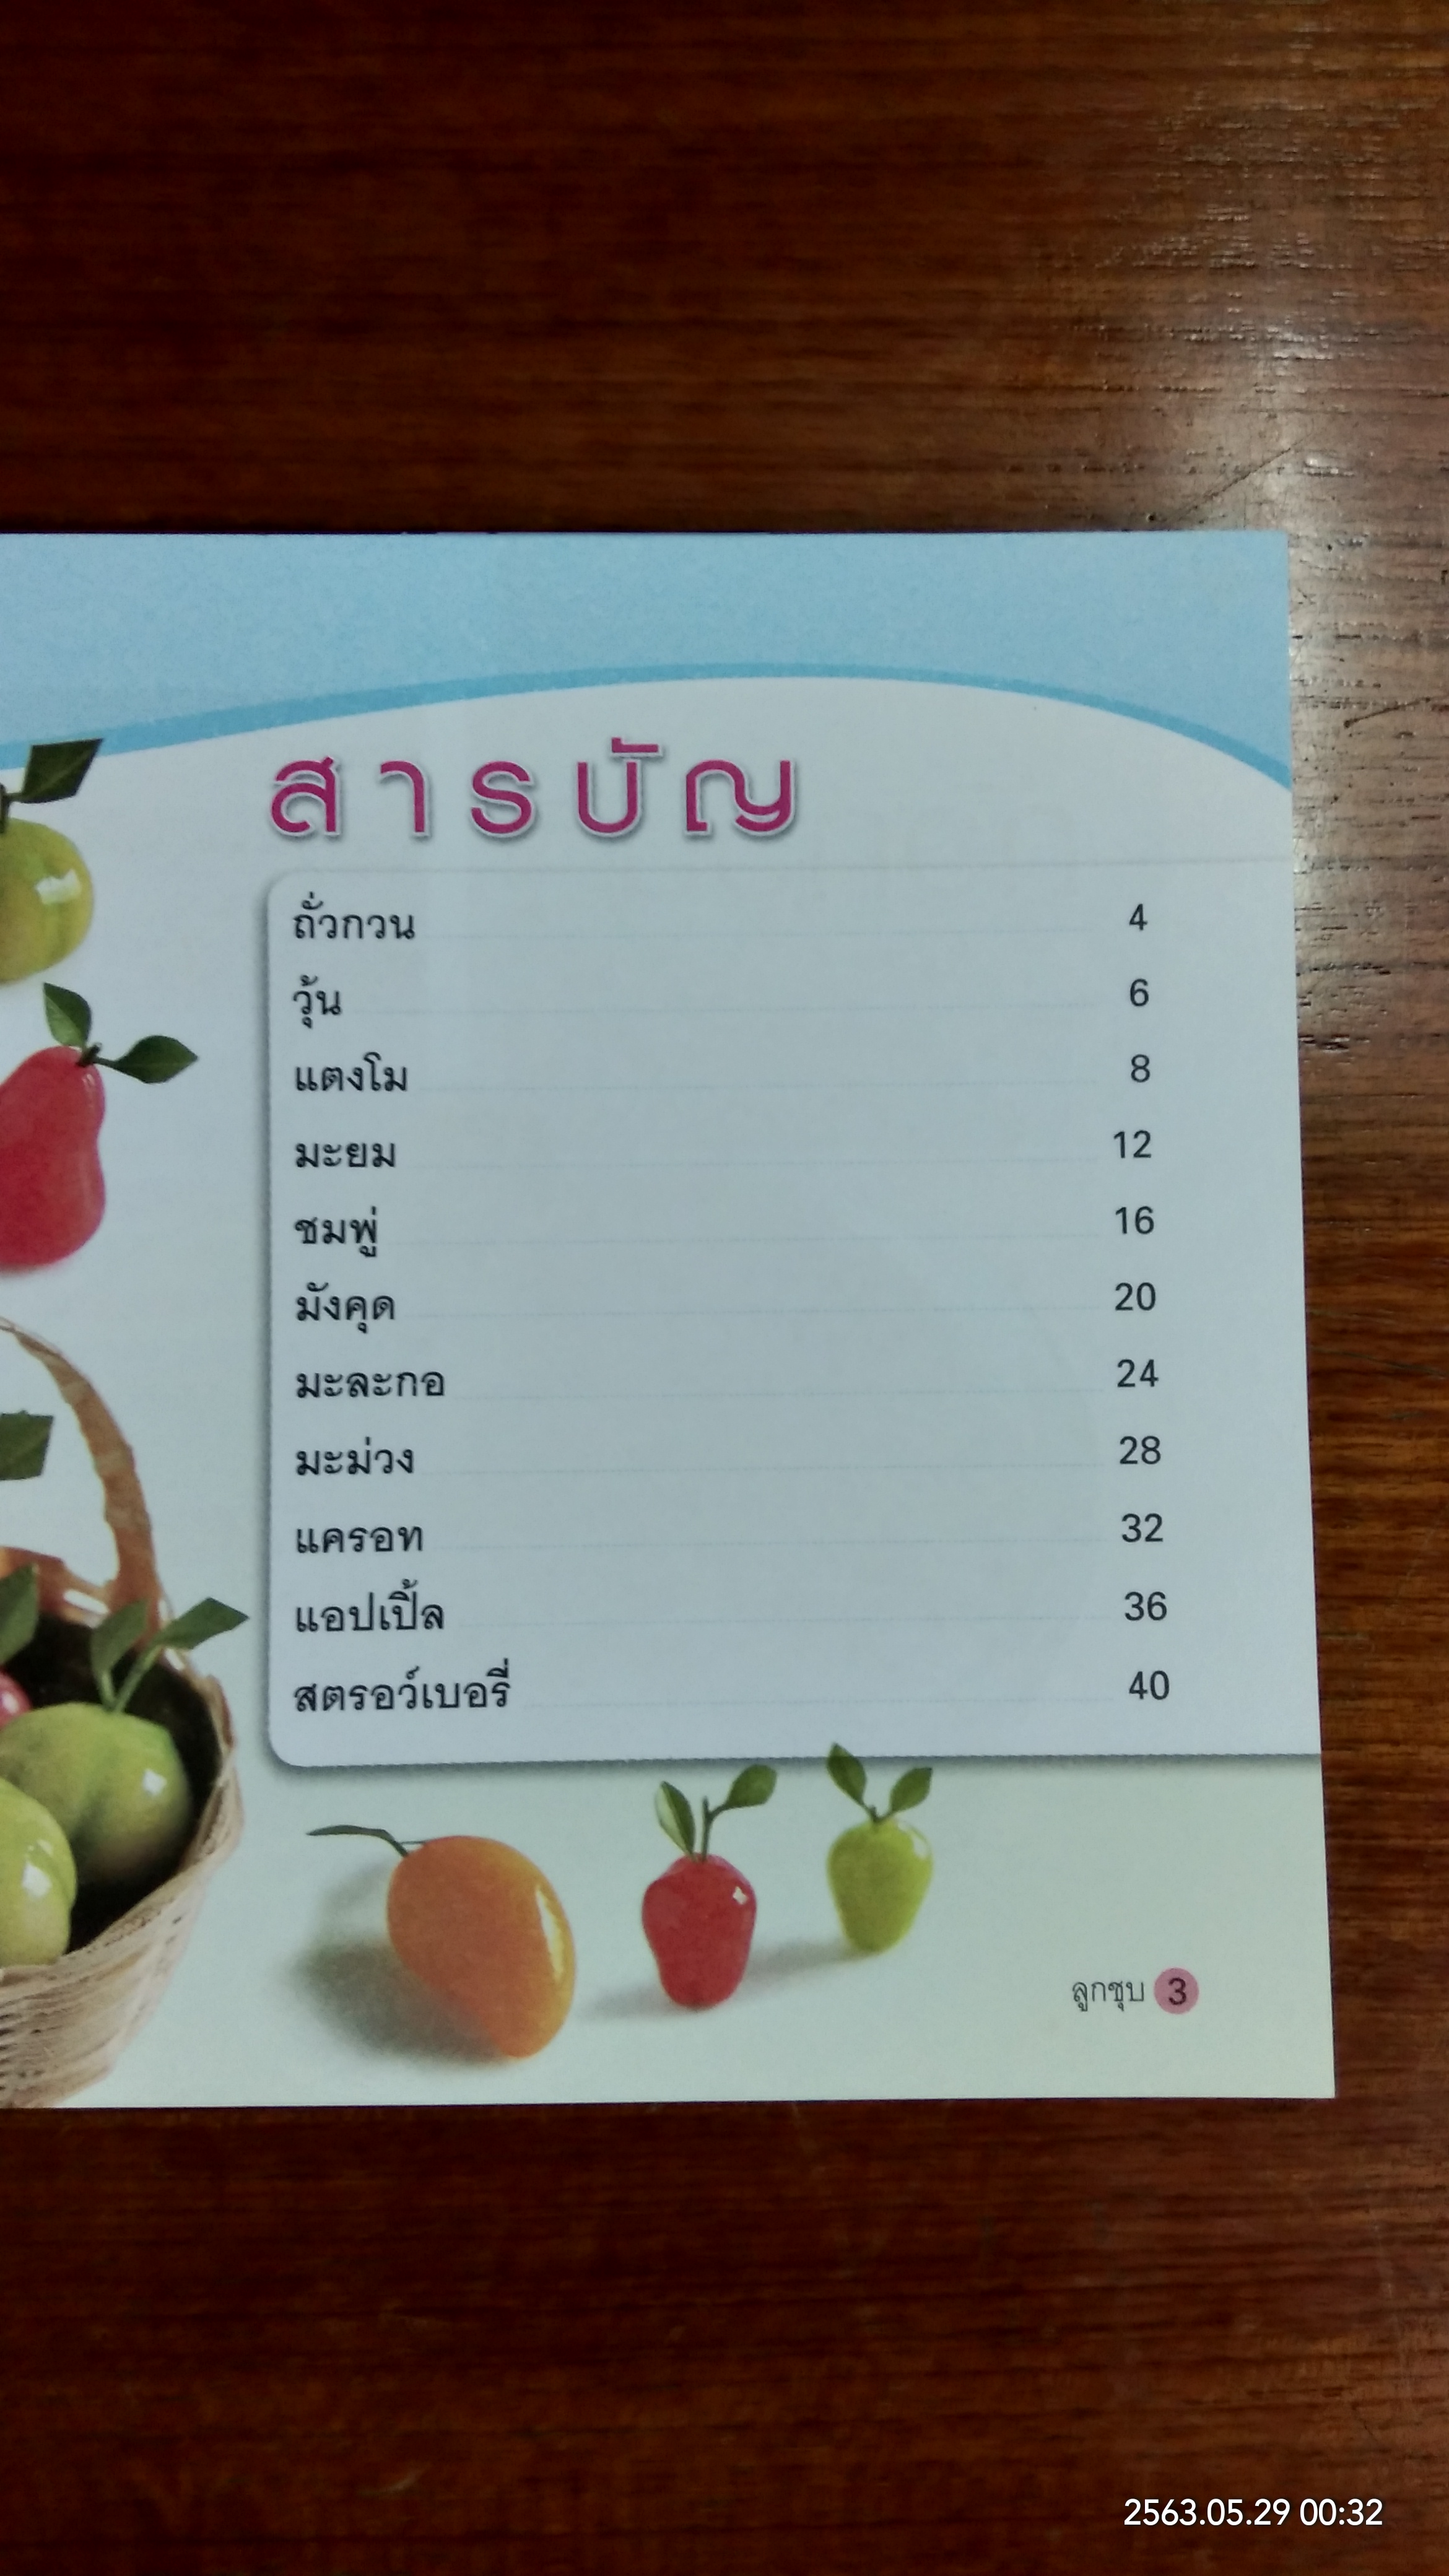 สารบัญ
ถั่วกวน 4
วุ้น 6
แตงโม 8
มะยม 12
ชมพู่ 16
มังคุด 20
มะละกอ 24
มะม่วง 28
แครอท 32
แอปเปิ้ล 36
สตรอว์เบอรี่ 40
ลูกชุบ 3
2563.05.29 00:32